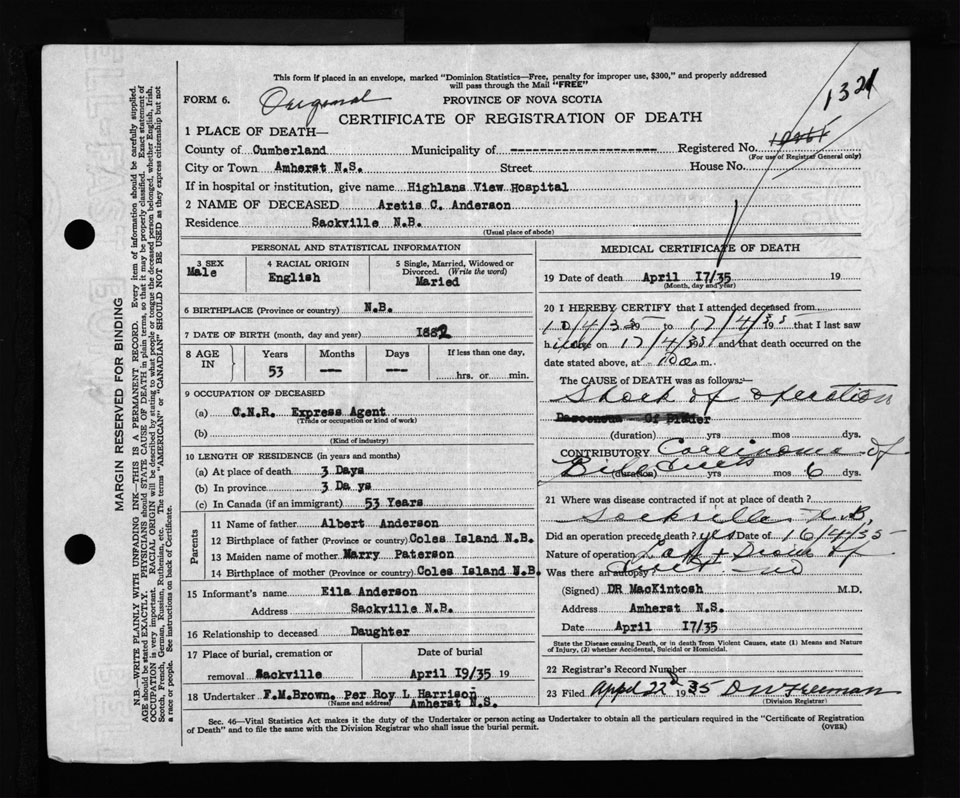 This form if placed in an envelope, marked "Dominion Statistics—Free, penalty for improper use, $300," and properly addressed
will pass through the Mail "FREE"
FORM 6.
PROVINCE OF NOVA SCOTIA
1321
CERTIFICATE OF REGISTRATION OF DEATH
1 PLACE OF DEATH—
County of Cumberland Municipality of -------------------- Registered No.
(For use of Registrar General only)
City or Town Amherst N.S. Street House No.
If in hospital or institution, give name Highlans View Hospital
2 NAME OF DECEASED Aretis C. Anderson
Residence Sackville N.B.
(Usual place of abode)
PERSONAL AND STATISTICAL INFORMATION
3 SEX Male
4 RACIAL ORIGIN English
5 Single, Married, Widowed or Divorced. (Write the word) Maried
6 BIRTHPLACE (Province or country) N.B.
7 DATE OF BIRTH (month, day and year) 1882
8 AGE IN Years Months Days If less than one day,
53 --- --- hrs. or min.
9 OCCUPATION OF DECEASED
(a) C.N.R. Express Agent
(Trade or occupation or kind of work)
(b)
(Kind of industry)
10 LENGTH OF RESIDENCE (in years and months)
(a) At place of death 3 Days
(b) In province 3 Da ys
(c) In Canada (if an immigrant) 53 Years
Parents
11 Name of father Albert Anderson
12 Birthplace of father (Province or country) Coles Island N.B.
13 Maiden name of mother Marry Paterson
14 Birthplace of mother (Province or country) Coles Island N.B.
15 Informant's name Eila Anderson
Address Sackville N.B.
16 Relationship to deceased Daughter
17 Place of burial, cremation or removal Sackville
Date of burial April I9/35 19
18 Undertaker F.M.Brown. Per Roy L Harrison
(Name and address) Amherst N.S.
MEDICAL CERTIFICATE OF DEATH
19 Date of death April I7/35 19
(Month, day and year)
20 I HEREBY CERTIFY that I attended deceased from
to 17/4/35 that I last saw
h alive on 17/4/35 and that death occurred on the
date stated above, at m.
The CAUSE OF DEATH was as follows:—
Shock of operation
(duration) yrs mos dys.
CONTRIBUTORY Carcinoma of
Bile ducts
(duration) yrs mos 6 dys.
21 Where was disease contracted if not at place of death?
Sackville N.B.
Did an operation precede death? yes Date of 16/4/35
Nature of operation
Was there an autopsy? no
(Signed) DR MacKintosh M.D.
Address Amherst N.S.
Date April I7/35
State the Disease causing Death, or in death from Violent Causes, state (1) Means and Nature
of Injury, (2) whether Accidental, Suicidal or Homicidal.
22 Registrar's Record Number
23 Filed April 22 1935 D W Freeman
(Division Registrar)
Sec. 46—Vital Statistics Act makes it the duty of the Undertaker or person acting as Undertaker to obtain all the particulars required in the "Certificate of Registration
of Death" and to file the same with the Division Registrar who shall issue the burial permit.
(OVER)
MARGIN RESERVED FOR BINDING
N.B.—WRITE PLAINLY WITH UNFADING INK—THIS IS A PERMANENT RECORD. Every item of information should be carefully supplied.
AGE should be stated EXACTLY. PHYSICIANS should STATE CAUSE OF DEATH in plain terms, so that it may be properly classified. Exact statement of
OCCUPATION is very important. RACIAL ORIGIN will be described by stating to what people or tongue the deceased person belonged, whether English, Irish,
Scotch, French, German, Russian, Ruthenian, etc. The terms "AMERICAN" or "CANADIAN" SHOULD NOT BE USED as they express citizenship but not
a race or people. See instructions on back of Certificate.